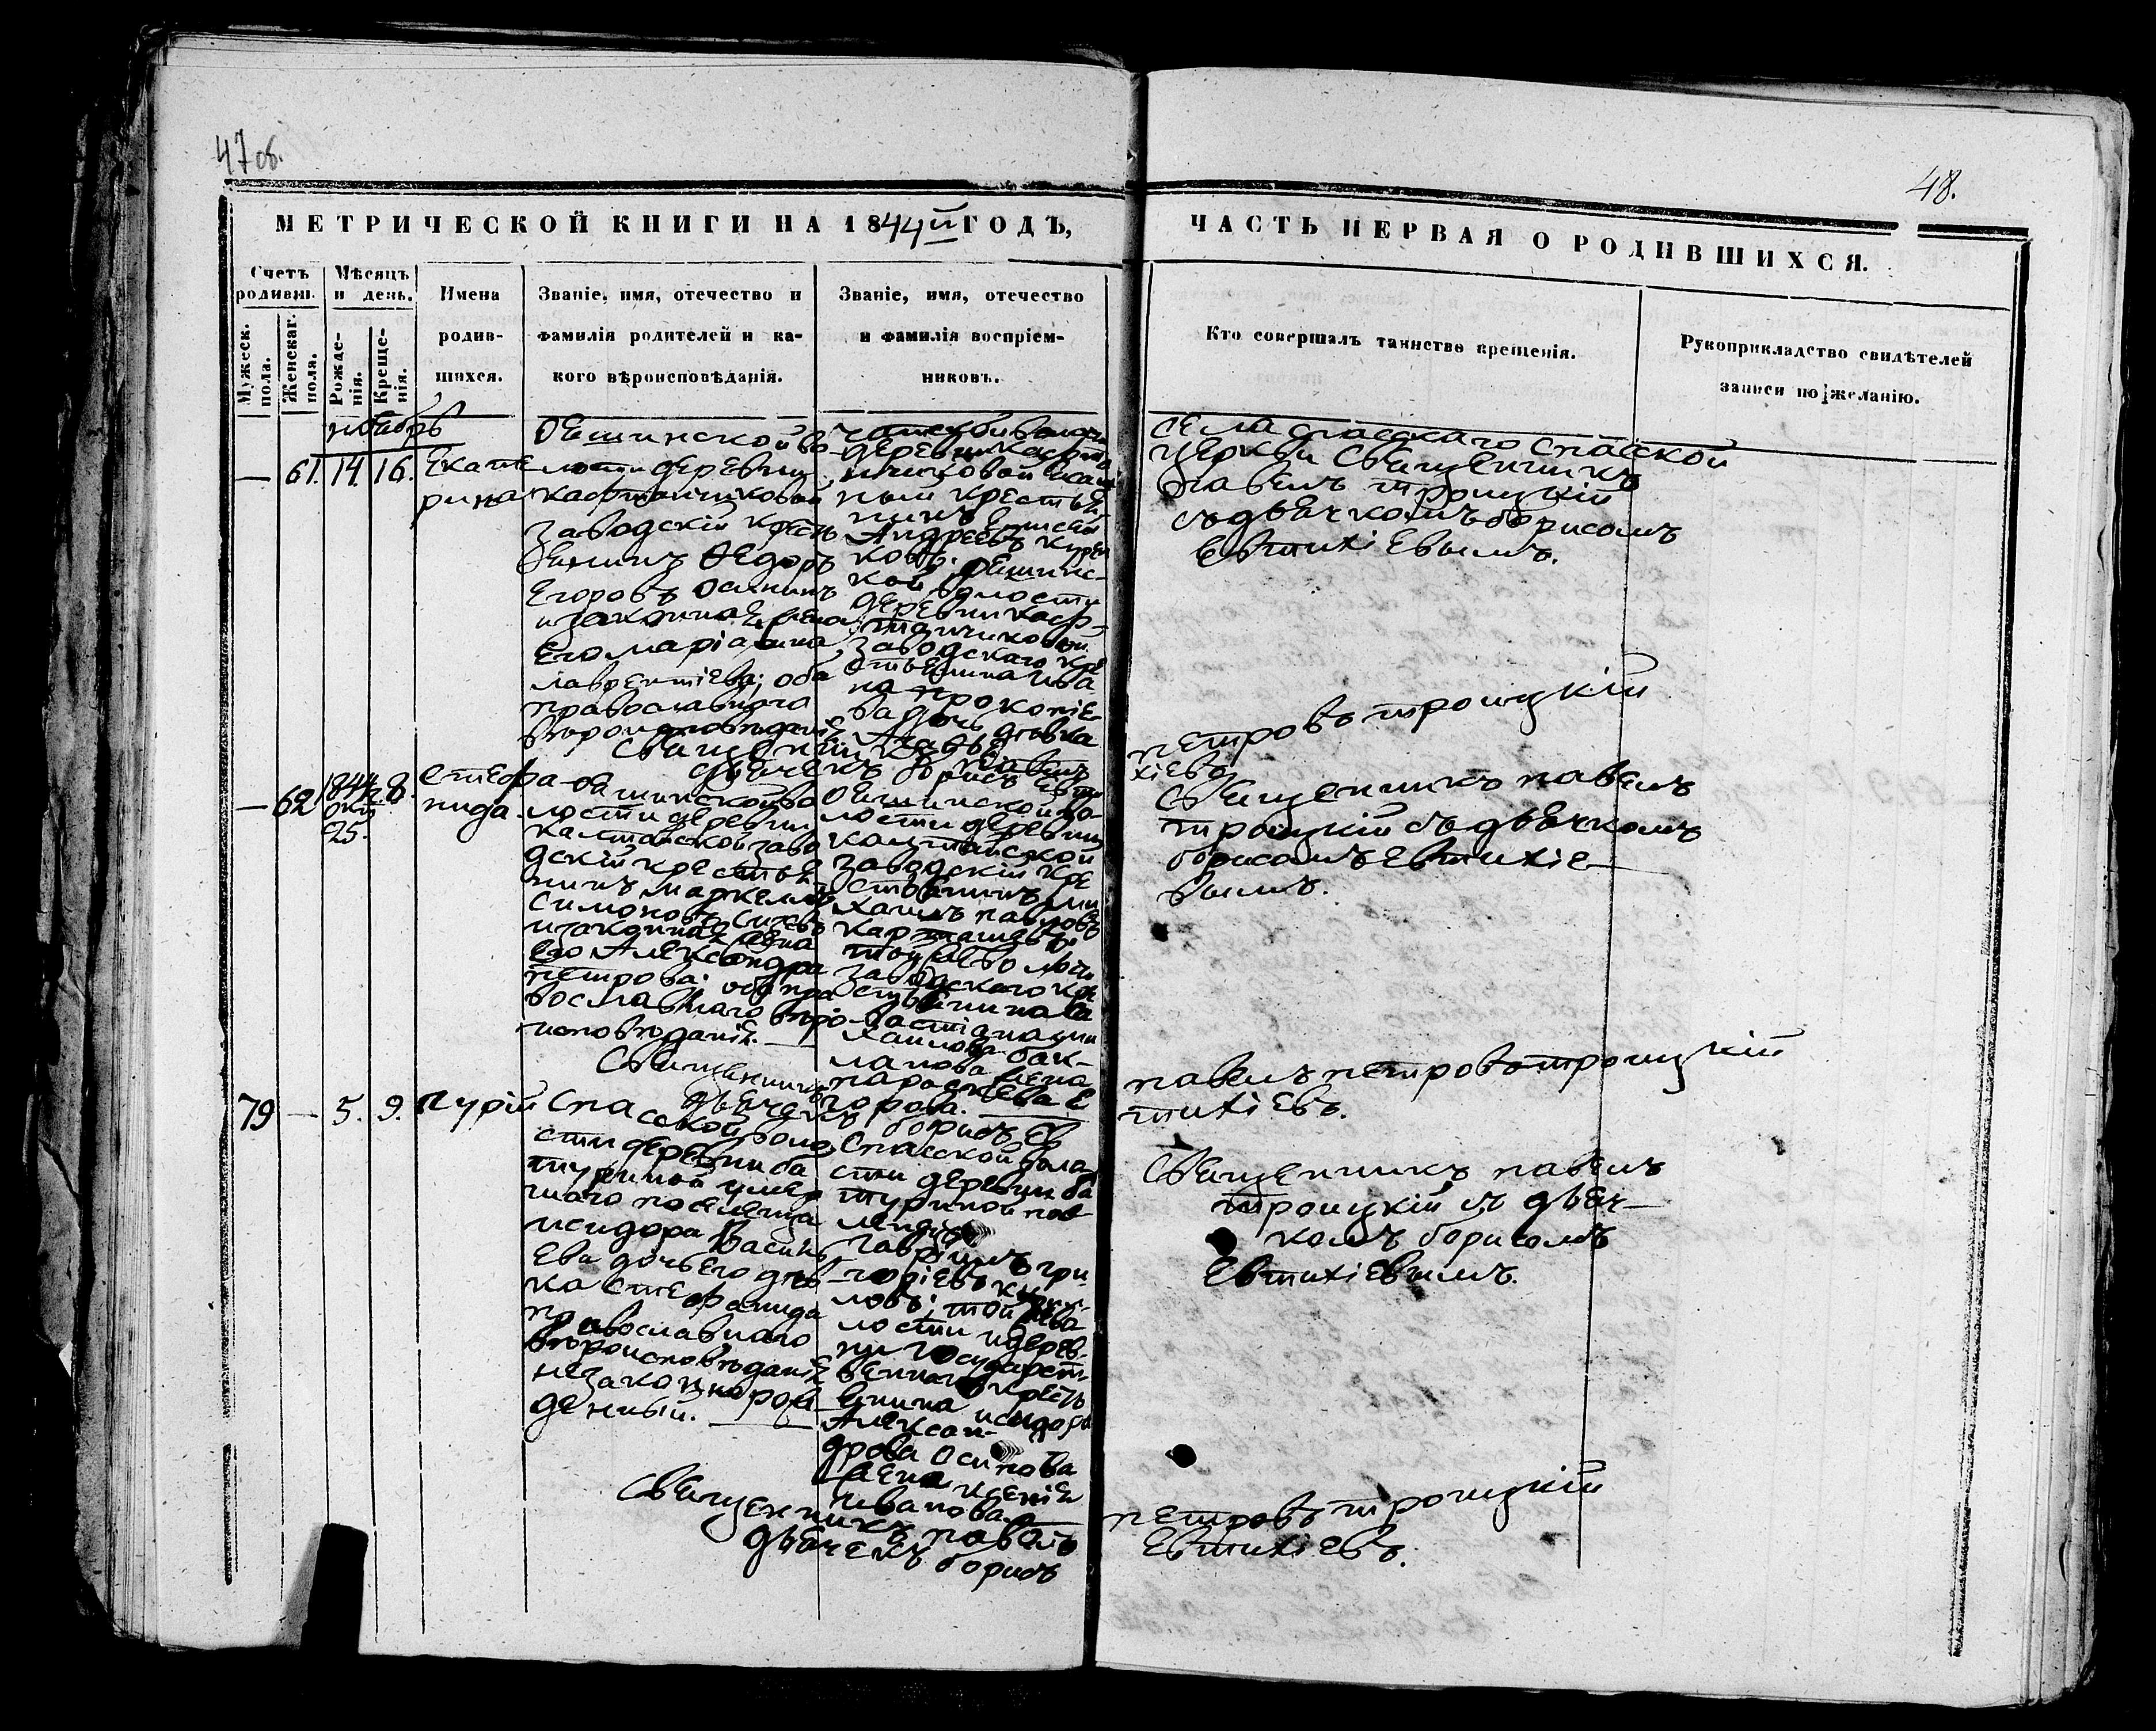 47 об.
48.
МЕТРИЧЕСКОЙ КНИГИ НА 1844й ГОДЪ,
ЧАСТЬ ПЕРВАЯ О РОДИВШИХСЯ.
Счетъ родивш.
Мужеск. пола.
Женскаг. пола.
Мѣсяцъ и день.
Рожде-
нія.
Креще-
нія.
Имена
родив-
шихся.
Званіе, имя, отечество и
фамилія родителей и ка-
кого вѣроисповѣданія.
Званіе, имя, отечество
и фамилія воспріем-
никовъ.
Кто совершалъ таинство крещенія.
Рукоприкладство свидѣтелей
записи по желанію.
ноябрь
— 61. 14. 16.
Екате
рина
лости деревни
кафтанчиковой
заводскій кресть
янинъ Ѳедоръ
Егоровъ Осипинъ
и законная жена
его маріамна
лаврентіева; оба
православнаго
вѣроисповѣданія
деревни кафта
нчиковой
ный крестья
нинъ
Андреевъ
ковъ.
кой волости
деревни каф-
танчиковой
заводскаго кре
стьянина ива
на прокопіе
ва дочь девка
села спасскаго спасской
церкви священникъ
павелъ троицкій
съ дьячкомъ борисомъ
Евтихіевымъ.
Священникъ павелъ
петровъ троицкій
дьячекъ борисъ Евти
хіевъ
— 62 1844 8.
25.
стефа-
нида
лости деревни
калтайской заво
дскій крестья
нинъ маркелъ
симоновъ
и законная жена
его Александра
петрова; оба пра
вославнаго вѣро
исповѣданія.
лости деревни
калтайской
заводскій кре
стьянинъ ми
хаилъ павловъ
карташевъ.
той же волости
заводскаго кре
стьянина
ми
хаилова
жена
параскева е
горова.
Священникъ павелъ
троицкій съ дьячкомъ
борисомъ Евтихіе
вымъ.
Священникъ
павелъ петровъ троицкій
дьячекъ борисъ Ев
тихіевъ.
79 — 5. 9.
гурій
Спа
сской воло
сти деревни ба
туриной умер
шаго поселенца
исидора Василь
ева дочь его дѣв
ка стефанида
православнаго
вѣроисповѣданія
незаконнорож
денный.
Спасской воло
сти деревни ба
туриной
гавріилъ гри
горіевъ
ловъ; той же во
лости и дерев
ни государст
веннаго кресть
янина исидора
Алексан-
дрова Осипова
жена ксенія
иванова.
Священникъ павелъ
троицкій съ дьяч—
комъ борисомъ
Евтихіевымъ.
Священникъ павелъ
петровъ троицкій
дьячекъ борисъ
Евтихіевъ.